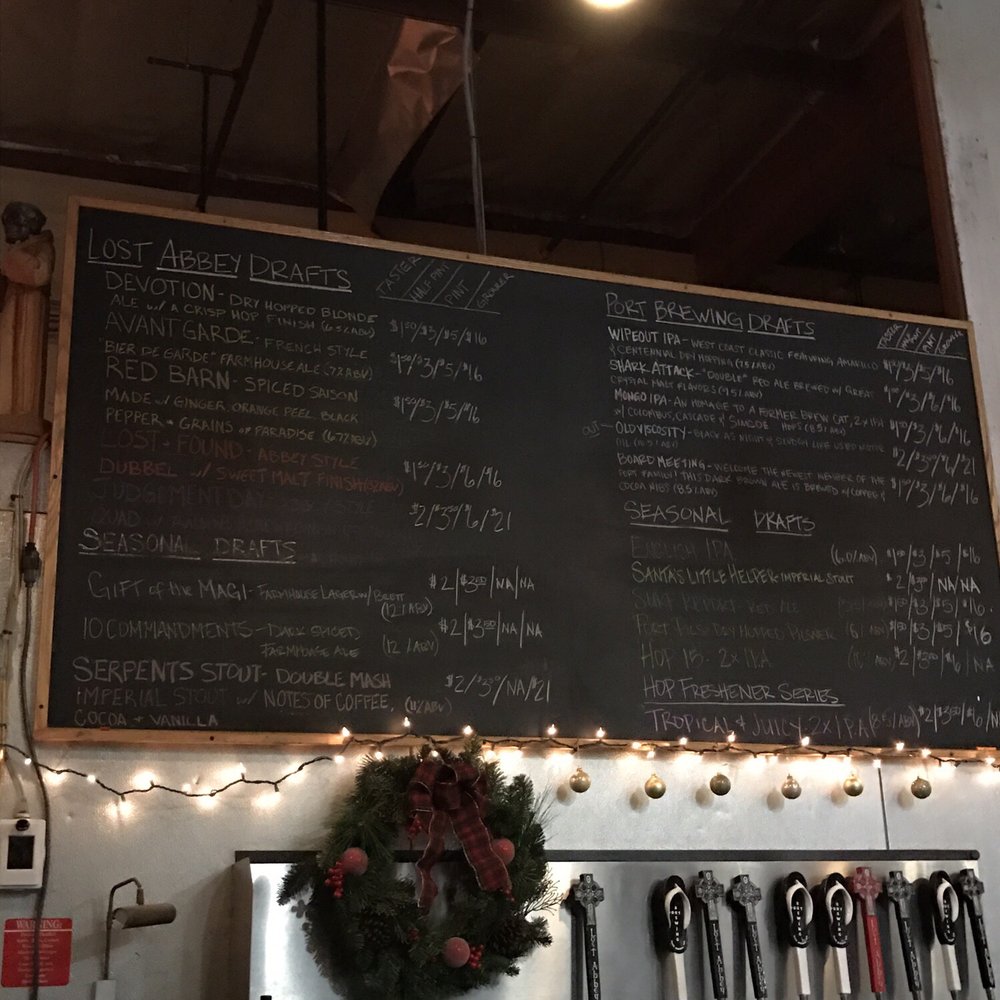 LOST ABBEY DRAFTS
TASTER
HALF PINT
PINT
GROWLER
DEVOTION - DRY HOPPED BLONDE
ALE w/ A CRISP HOP FINISH (6.5% ABV)
$1.50/$3/$5/$16
AVANT GARDE - FRENCH STYLE
"BIER DE GARDE" FARMHOUSE ALE (7% ABV)
$1.50/$3/$5/$16
RED BARN - SPICED SAISON
MADE w/ GINGER, ORANGE PEEL, BLACK
PEPPER + GRAINS OF PARADISE (6.7% ABV)
$1.50/$3/$5/$16
LOST + FOUND - ABBEY STYLE
DUBBEL w/ SWEET MALT FINISH
$1.50/$3/$6/$16
JUDGEMENT DAY STYLE
QUAD w/
$2/$3.50/$6/$21
SEASONAL DRAFTS
GIFT of the MAGI - FARMHOUSE LAGER w/ BRETT
(12% ABV)
$2/$3.50/NA/NA
10 COMMANDMENTS - DARK SPICED
FARMHOUSE ALE (12% ABV)
$2/$3.50/NA/NA
SERPENTS STOUT - DOUBLE MASH
IMPERIAL STOUT w/ NOTES OF COFFEE, (11% ABV)
COCOA + VANILLA
$2/$3.50/NA/$21
PORT BREWING DRAFTS
TASTER
HALF PINT
PINT
GROWLER
WIPEOUT IPA - WEST COAST CLASSIC FEATURING AMARILLO
& CENTENNIAL DRY HOPPING (7% ABV)
$1.50/$3/$5/$16
SHARK ATTACK - "DOUBLE" RED ALE BREWED w/ GREAT
CRYSTAL MALT FLAVORS (9.5% ABV)
$1.50/$3/$6/$16
MONGO IPA - AN HOMAGE TO A FORMER BREW CAT, 2X IPA
w/ COLUMBUS, CASCADE & SIMCOE HOPS (8.5% ABV)
$1.50/$3/$6/$16
OUT - OLD VISCOSITY - BLACK AS NIGHT & SLUDGY LIKE USED MOTOR
OIL (10.5% ABV)
$2/$3.50/$6/$21
BOARD MEETING - WELCOME THE NEWEST MEMBER OF THE
PORT FAMILY! THIS DARK BROWN ALE IS BREWED w/ COFFEE &
COCOA NIBS (8.5% ABV)
$1.50/$3/$6/$16
SEASONAL DRAFTS
ENGLISH IPA (6.0% ABV) $1.50/$3/$5/$16
SANTA'S LITTLE HELPER - IMPERIAL STOUT $2/$3.50/NA/NA
SURF REPORT - RED ALE $1.50/$3/$5/$16
PORT PILS - DRY HOPPED PILSNER $1.50/$3/$5/$16
HOP 15 - 2X IPA $2/$3.50/$6/NA
HOP FRESHENER SERIES
TROPICAL & JUICY 2X IPA (8.5% ABV) $2/$3.50/$6/
WARNING:
Lost Abbey